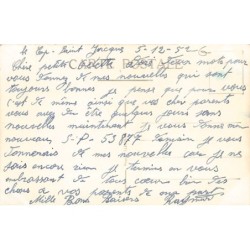 le Cap-Saint Jacques 5-12-52
Chère petite Colette deux mots pour
vous donner de mes nouvelles qui sont
toujours bonnes je pense que pour vous
c'est de même ainsi que vos chers parents
vous avez du être quelques jours sans
nouvelles maintenant je vous donne mon
nouveau, S-P- 53.877 je vous
donnerais de mes nouvelles car je ne
sais encore rien je termine en vous
embrassant de tout coeur bien des
choses a vos parents de ma part
Mille Bons Baisers